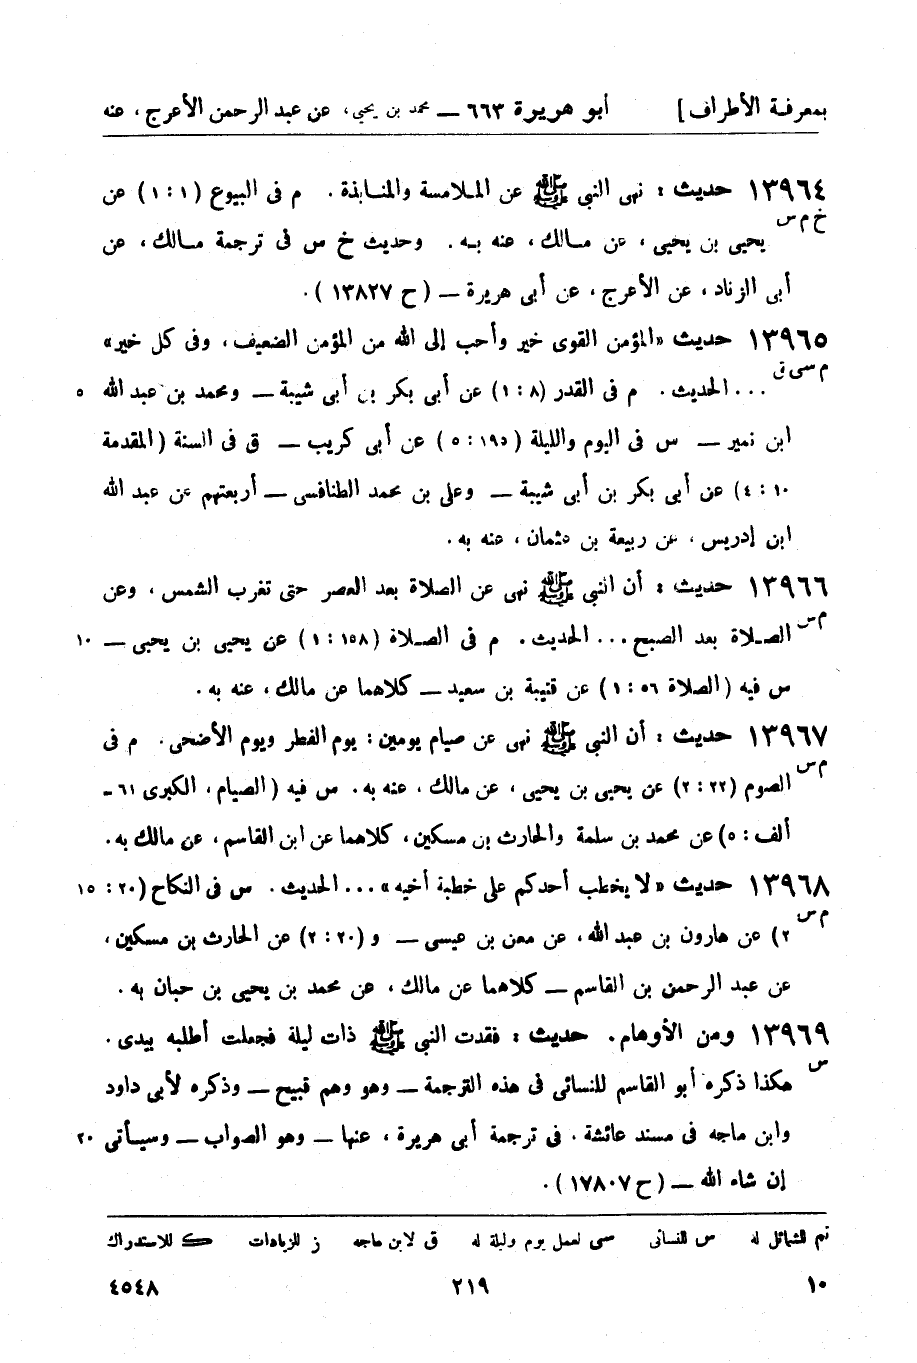 بمعرفة الأطراف ] أبو هريرة ٦٦٣ ــ محمد بن يحيى، عن عبد الرحمن الأعرج ، عنه
١٣٩٦٤ حديث : نهى النبي ﷺ عن الملامسة والمنابذة . م فى البيوع (١ : ١ ) عن
خ م س
يحيى بن يحيى ، عن مـالك ، عنه بـه . وحديث خ س فى ترجمة مـالك ، عن
أبى الزناد ، عن الأعرج ، عن أبى هريرة ــ ( ح ١٣٨٢٧ ) .
١٣٩٦٥ حديث «المؤمن القوى خير وأحب إلى الله من المؤمن الضعيف ، وفى كل خير»
م سى ق
... الحديث . م فى القدر (٨ : ١) عن أبى بكر بن أبى شيبة ــ ومحمد بن عبد الله ٥
ابن نمير ــ س فى اليوم والليلة ( ١٩٥ : ٥ ) عن أبى كريب ــ ق فى السنة ( المقدمة
١٠ : ٤) عن أبى بكر بن أبى شيبة ــ وعلى بن محمد الطنافسى ــ أربعتهم عن عبد الله
ابن إدريس ، عن ربيعة بن عثمان ، عنه به .
١٣٩٦٦ حديث : أن النبى ﷺ نهى عن الصلاة بعد العصر حتى تغرب الشمس ، وعن
م س
الصـلاة بعد الصبح ... الحديث . م فى الصـلاة (١٥٨ : ١ ) عن يحيى بن يحيى ــ ١٠
س فيه ( الصلاة ٥٦ : ١ ) عن قتيبة بن سعيد ــ كلاهما عن مالك ، عنه به .
١٣٩٦٧ حديث : أن النبى ﷺ نهى عن صيام يومين : يوم الفطر ويوم الأضحى . م فى
م س
الصوم (٢٢ : ٢) عن يحيى بن يحيى ، عن مالك ، عنه به . س فيه ( الصيام ، الكبرى ٦١ ـ
ألف : ٥) عن محمد بن سلمة والحارث بن مسكين ، كلاهما عن ابن القاسم ، عن مالك به .
١٣٩٦٨ حديث « لا يخطب أحدكم على خطبة أخيه» ... الحديث . س فى النكاح (٢٠ : ١٥
م س
٢) عن هارون بن عبد الله ، عن معن بن عيسى ــ و (٢٠ : ٢) عن الحارث بن مسكين ،
عن عبد الرحمن بن القاسم ــ كلاهما عن مالك ، عن محمد بن يحيى بن حبان به .
١٣٩٦٩ ومن الأوهام . حديث : فقدت النبى ﷺ ذات ليلة فجعلت أطلبه بيدى .
س
هكذا ذكره أبو القاسم للنسائى فى هذه الترجمة ــ وهو وهم قبيح ــ وذكره لأبى داود
وابن ماجه فى مسند عائشة . فى ترجمة أبى هريرة ، عنها ــ وهو الصواب ــ وسيـأتى ٢٠
إن شاء الله ــ ( ح ١٧٨٠٧ ) .
تم للشمائل له س للنسائى سى لعمل يوم وليلة له ق لابن ماجه ز للزيادات ك للاستدراك
١٠ ٢١٩ ٤٥٤٨